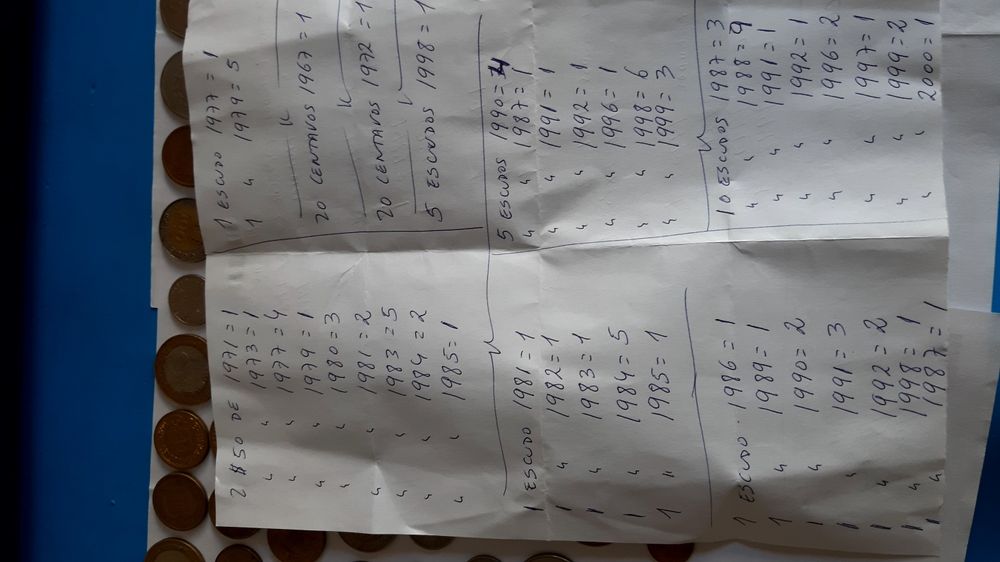 2 $ 50 DE 1971 = 1
" " 1973 = 1
" " 1977 = 4
" " 1979 = 1
" " 1980 = 3
" " 1981 = 2
" " 1983 = 5
" " 1984 = 2
" " 1985 = 1
1 ESCUDO 1981 = 1
1 " 1982 = 1
1 " 1983 = 1
1 " 1984 = 5
1 " 1985 = 1
1 ESCUDO. 1986 = 1
1 " 1989 = 1
1 " 1990 = 2
1 " 1991 = 3
1 " 1992 = 2
1 " 1998 = 1
1 " 1987 = 1
1 ESCUDO 1977 = 1
1 " 1979 = 5
20 CENTAVOS 1967 = 1
20 CENTAVOS 1972 = 1
5 ESCUDOS 1998 = 1
5 ESCUDOS 1990 = 4
" " 1987 = 1
" " 1991 = 1
" " 1992 = 1
" " 1996 = 1
" " 1998 = 6
" " 1999 = 3
10 ESCUDOS 1987 = 3
" " 1988 = 9
" " 1991 = 1
" " 1992 = 1
" " 1996 = 2
" " 1997 = 1
" " 1999 = 2
" " 2000 = 1